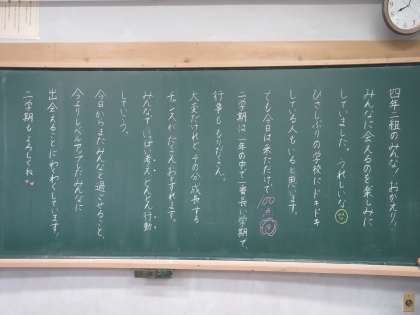 四年二組のみんな！おかえり！
みんなに会えるのを楽しみに
していました。うれしいな
ひさしぶりの学校にドキドキ
している人もいると思います。
でも今日は来ただけで100点
二学期は一年の中で一番長い学期で、
行事ももりだくさん。
大変だけれど、その分成長する
チャンスがたくさんおとずれます。
みんなでいっぱい考え、どんどん行動
していこう。
今日からまたみんなと過ごせること、
今よりレベルアップしたみんなに
出会えることにわくわくしています。
二学期もよろしくね